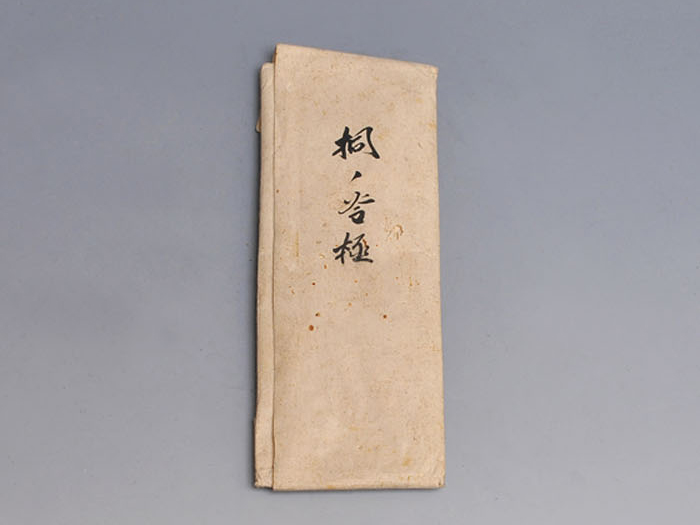 桐ノ谷極